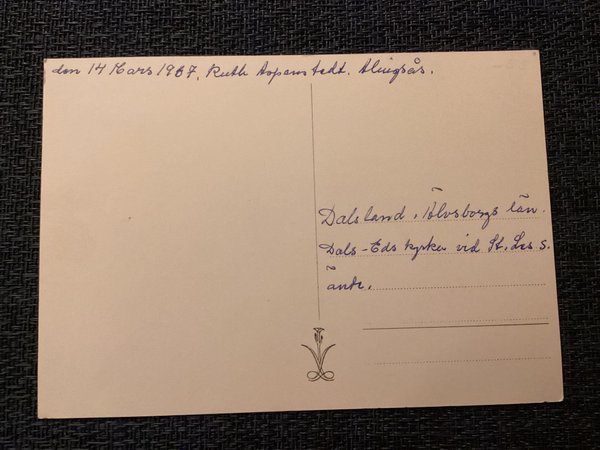 den 14 Mars 1967, Ruth Aspenstedt. Alingsås.
Dalsland, Älvsborgs län.
Dals-Eds kyrka vid St. Les s.
ände.